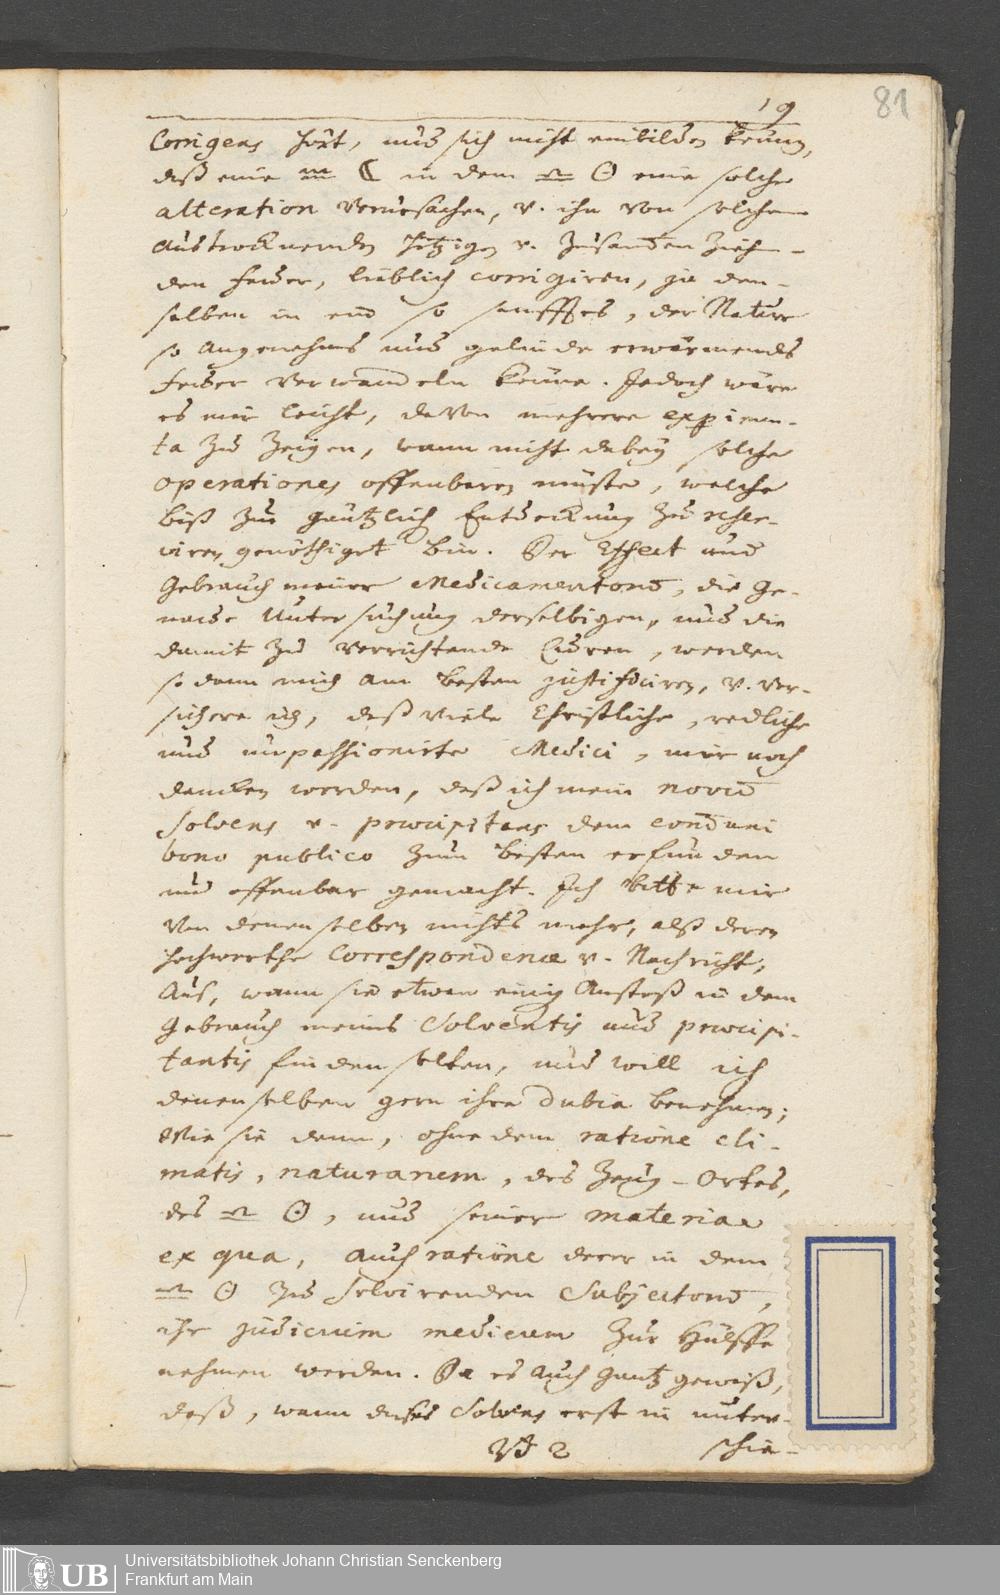 19
81
Corrigens hört, und sich nicht einbilden kenne,
daß eine ♏ ☾ in dem ♎ ☉ eine solche
alteration verursachen, v. ihn von solchem
austrocknenden hitzigen v. zusam̄en zieh-
den feüer, lieblich corrigiren, ja den-
selben in ein so sanfftes, der Natur
so angenehmes und gelinde erwärmendes
feüer verwandeln kenne. Jedoch wäre
es mir leicht, davon mehrere experimen-
ta zu zeigen, wann nicht dabey solche
operationes offenbaren müste, welche
biß zur gäntzlich Entdeckung zu reser-
viren genöthiget bin. Der Effect und
Gebrauch meiner Medicamentorū, die ge-
naue Untersuchung derselbigen, und die
damit zu verrichtende Curen, werden
so dann mich am besten justificiren, v. ver-
sichere ich, daß viele Christliche, redliche
und unpassionirte Medici, mir noch
dancken werden, daß ich mein novū
Solvens v. præcipitans dem com̄uni
bono publico zum besten erfunden
und offenbar gemacht. Ich bitte mir
von denenselben nichts mehr, alß deren
hochwerthe Correspondence v. Nachricht,
aus, wann sie etwan einig Anstoß in dem
Gebrauch meines Solventis und præcipi-
tantis finden solten, und will ich
denenselben gern ihre dubia benehmen;
Wie sie denn, ohne dem ratione cli-
matis, naturarum, des Zeug-Ortes,
des ♎ ☉, und seiner materiae
ex qua, auch ratione derer in dem
♎ ☉ zu solvirenden Subjectorū,
ihr judicium medicum zur Hülffe
nehmen werden. Da es auch gantz gewiß,
daß, wann dises Solvens erst in unter-
2 schie-
UB
Universitätsbibliothek Johann Christian Senckenberg
Frankfurt am Main